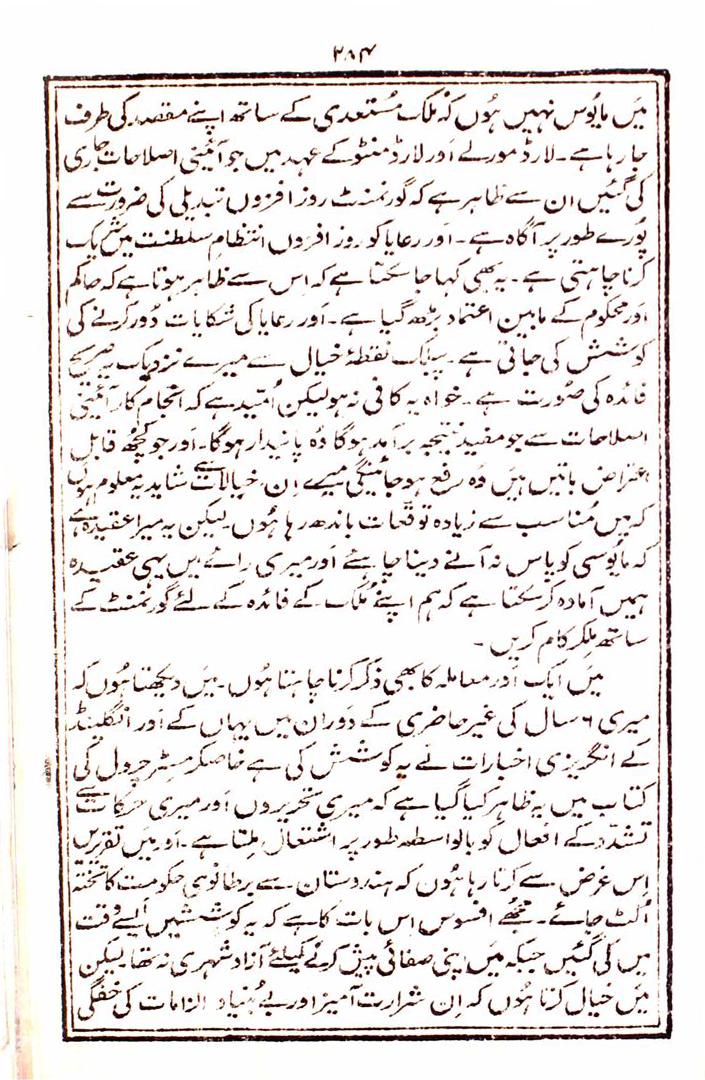 ۲۸۴
میں مایوس نہیں ہوں کہ ملک مستعدی کے ساتھ اپنے مقصد کی طرف
جا رہا ہے۔ لارڈ مورلے اور لارڈ منٹو کے عہد میں جو آئینی اصلاحات جاری
کی گئیں ان سے ظاہر ہے کہ گورنمنٹ روز افزوں تبدیلی کی ضرورت سے
پورے طور پر آگاہ ہے۔ اور رعایا کو روز افزوں انتظام سلطنت میں شریک
کرنا چاہتی ہے۔ یہ بھی کہا جا سکتا ہے کہ اس سے ظاہر ہوتا ہے کہ حاکم
اور محکوم کے مابین اعتماد بڑھ گیا ہے۔ اور رعایا کی شکایات دور کرنے کی
کوشش کی جاتی ہے۔ پبلک نقطۂ خیال سے میرے نزدیک یہ صریح
فائدہ کی صورت ہے۔ خواہ یہ کافی نہ ہو لیکن اُمید ہے کہ انجام کار آئینی
اصلاحات سے جو مفید نتیجہ برآمد ہوگا وہ پائیدار ہوگا۔ اور جو کچھ قابل
اعتراض باتیں ہیں وہ رفع ہو جائینگی میرے اِن خیالات سے شاید یہ معلوم ہو
کہ میں مُناسب سے زیادہ توقعات باندھ رہا ہوں۔ لیکن یہ میرا عقیدہ ہے
کہ مایوسی کو پاس نہ آنے دینا چاہئے اور میری رائے میں یہی عقیدہ
ہمیں آمادہ کر سکتا ہے کہ ہم اپنے مُلک کے فائدہ کے لئے گورنمنٹ کے
ساتھ ملکر کام کریں۔
میں ایک اور معاملہ کا بھی ذکر کرنا چاہتا ہوں۔ میں دیکھتا ہوں کہ
میری ۶ سال کی غیر حاضری کے دوران میں یہاں کے اور انگلینڈ
کے انگریزی اخبارات نے یہ کوشش کی ہے خاصکر مسٹر چرول کی
کتاب میں یہ ظاہر کیا گیا ہے کہ میری تحریروں اور میری حرکات سے
تشدد کے افعال کو بالواسطہ طور پر اشتعال ملتا ہے۔ اور میں تقریریں
اِس غرض سے کرتا رہا ہوں کہ ہندوستان سے برطانوی حکومت کا تختہ
اُلٹ جائے۔ مجھے افسوس اس بات کا ہے کہ یہ کوششیں ایسے وقت
میں کی گئیں جبکہ میں اپنی صفائی پیش کرنے کیلئے آزاد شہری نہ تھا۔ لیکن
میں خیال کرتا ہوں کہ اِن شرارت آمیز اور بے بنیاد الزامات کی خفگی